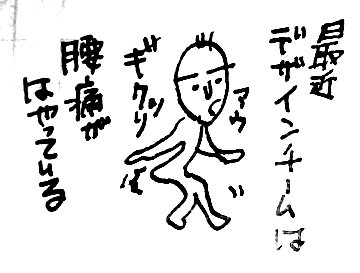 最近
デザインチームは
アウ
ギクッリ
腰痛が
はやっている